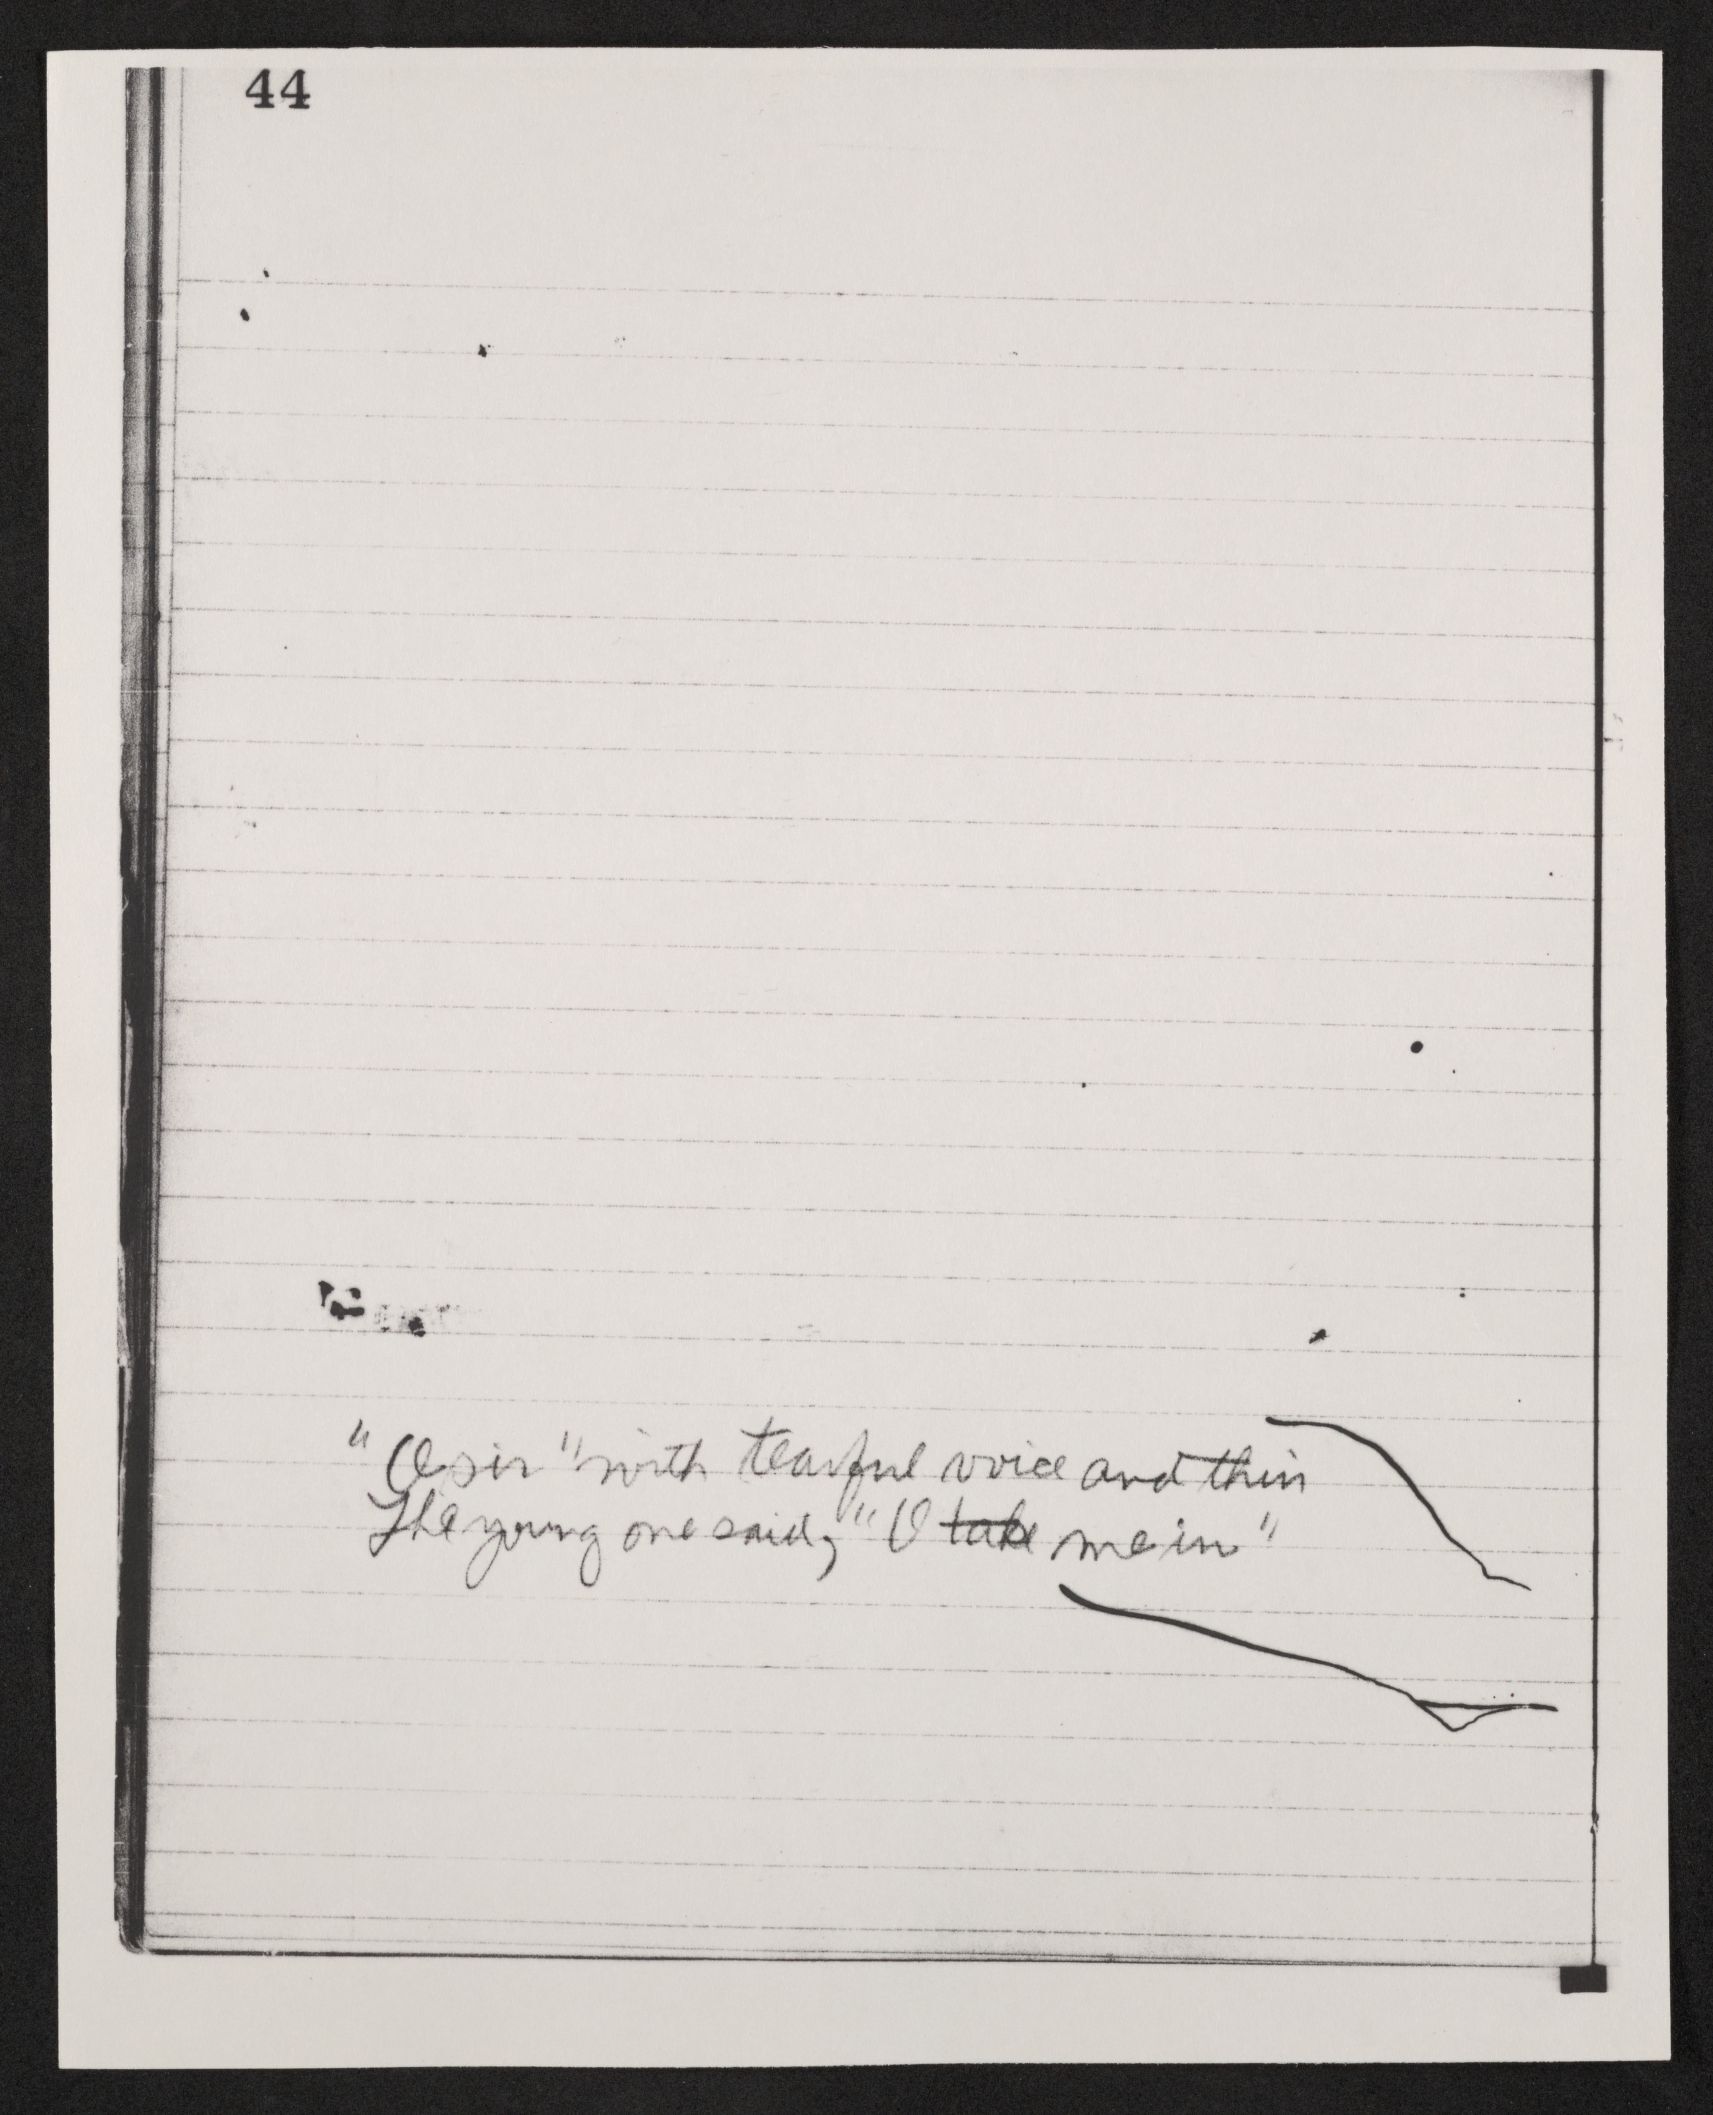 44
"O sir" with tearful voice and thin
The young one said, "O take me in"